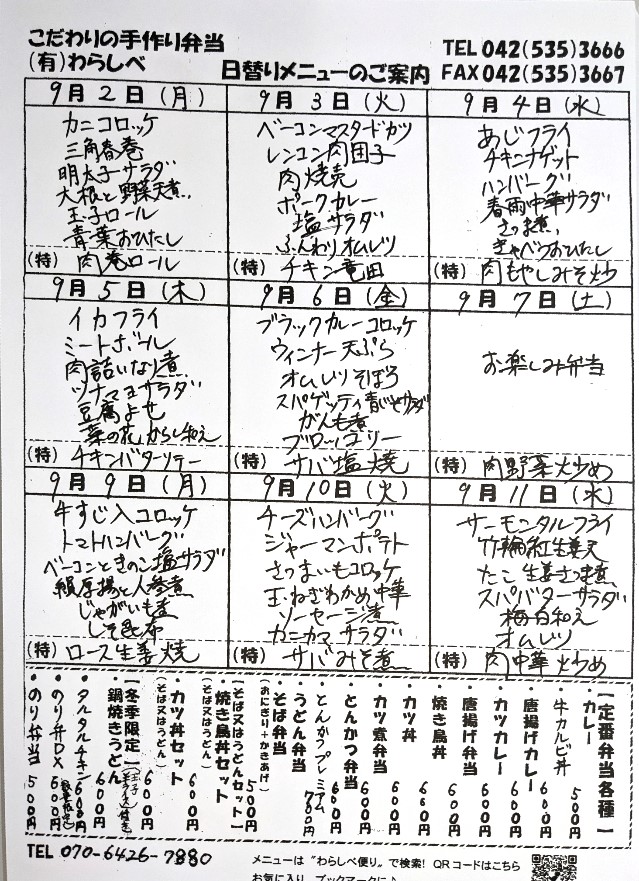 こだわりの手作り弁当
(有)わらしべ
日替りメニューのご案内
TEL 042(535)3666
FAX 042(535)3667
9月2日(月)
カニコロッケ
三角春巻
明太子サラダ
大根と野菜天煮
玉子ロール
青菜おひたし
(特) 肉巻ロール
9月3日(火)
ベーコンマスタードカツ
レンコン肉団子
肉焼売
ポークカレー
塩サラダ
ふんわりオムレツ
(特) チキン竜田
9月4日(水)
あじフライ
チキンナゲット
ハンバーグ
春雨中華サラダ
さつま煮
きゃべつおひたし
(特) 肉もやしみそ炒
9月5日(木)
イカフライ
ミートボール
肉詰いなり煮
ツナマヨサラダ
豆腐よせ
菜の花からし和え
(特) チキンバターソテー
9月6日(金)
ブラックカレーコロッケ
ウィンナー天ぷら
オムレツそぼろ
スパゲッティ青じそサラダ
がんも煮
ブロッコリー
(特) サバ塩焼
9月7日(土)
お楽しみ弁当
(特) 肉野菜炒め
9月9日(月)
牛すじ入コロッケ
トマトハンバーグ
ベーコンときのこ塩サラダ
絹厚揚と人参煮
じゃがいも煮
しそ昆布
(特) ロース生姜焼
9月10日(火)
チーズハンバーグ
ジャーマンポテト
さつまいもコロッケ
玉ねぎわかめ中華
ソーセージ煮
カニカマサラダ
(特) サバみそ煮
9月11日(水)
サーモンタルフライ
竹輪紅生姜天
たこ生姜さつま煮
スパバターサラダ
梅白和え
オムレツ
(特) 肉中華炒め
【定番弁当各種】
・カレー 500円
・牛カルビ丼 600円
・唐揚げカレー 600円
・カツカレー 600円
・唐揚げ弁当 600円
・焼き鳥丼 600円
・カツ丼 600円
・カツ煮弁当 600円
・とんかつ弁当 600円
・とんかつプレミアム 700円
・うどん弁当
・そば弁当
(おにぎり+かきあげ) 500円
【そば又はうどんセット】
・焼き鳥丼セット
(そば又はうどん) 600円
・カツ丼セット
(そば又はうどん) 600円
【冬季限定】
・鍋焼きうどん 600円
・タルタルチキン 600円
・のり弁DX 600円
・のり弁当 500円
TEL 070-6426-7880
メニューは“わらしべ便り”で検索! QRコードはこちら
お気に入り、ブックマークに♪